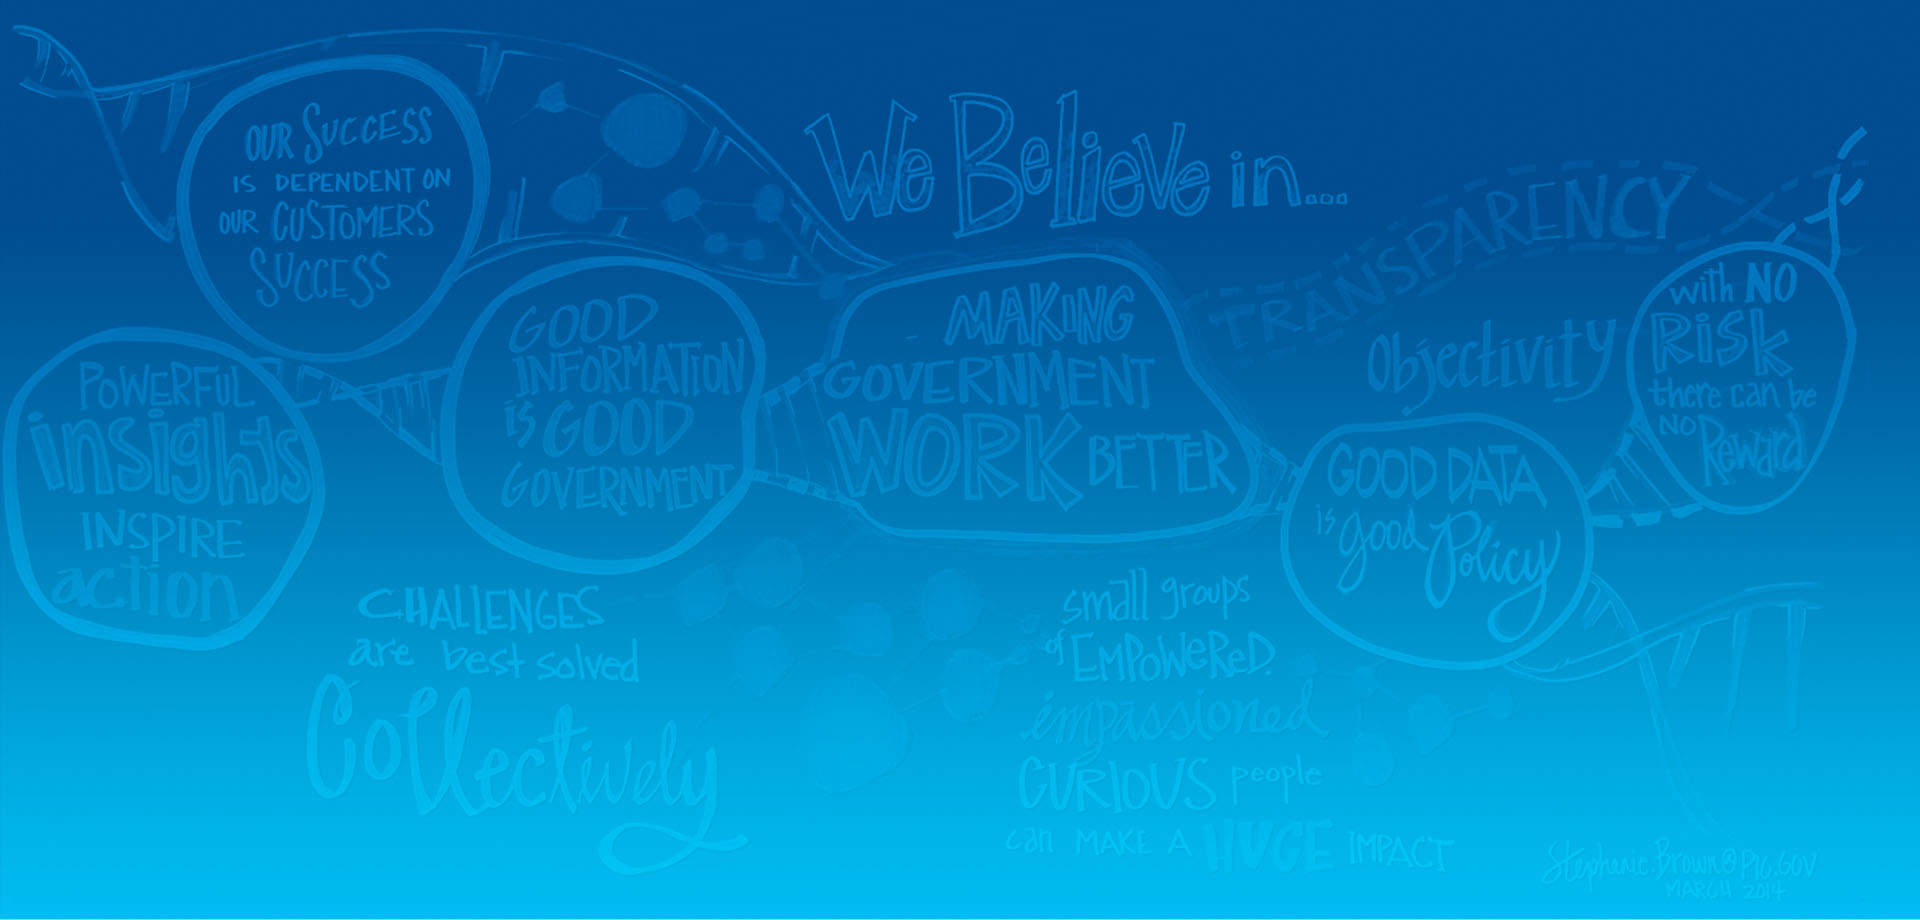 We Believe in...
OUR SUCCESS
IS DEPENDENT ON
OUR CUSTOMERS
SUCCESS
POWERFUL
insights
INSPIRE
action
GOOD
INFORMATION
is GOOD
GOVERNMENT
MAKING
GOVERNMENT
WORK BETTER
TRANSPARENCY
Objectivity
GOOD DATA
is good Policy
with NO
RiSK
there can be
NO Reward
CHALLENGES
are best solved
Collectively
small groups
of EMPOWEReD.
impassioned
CURIOUS people
can MAKE A HUGE IMPACT
Stephanie.Brown@PIC.GOV
MARCH 2014